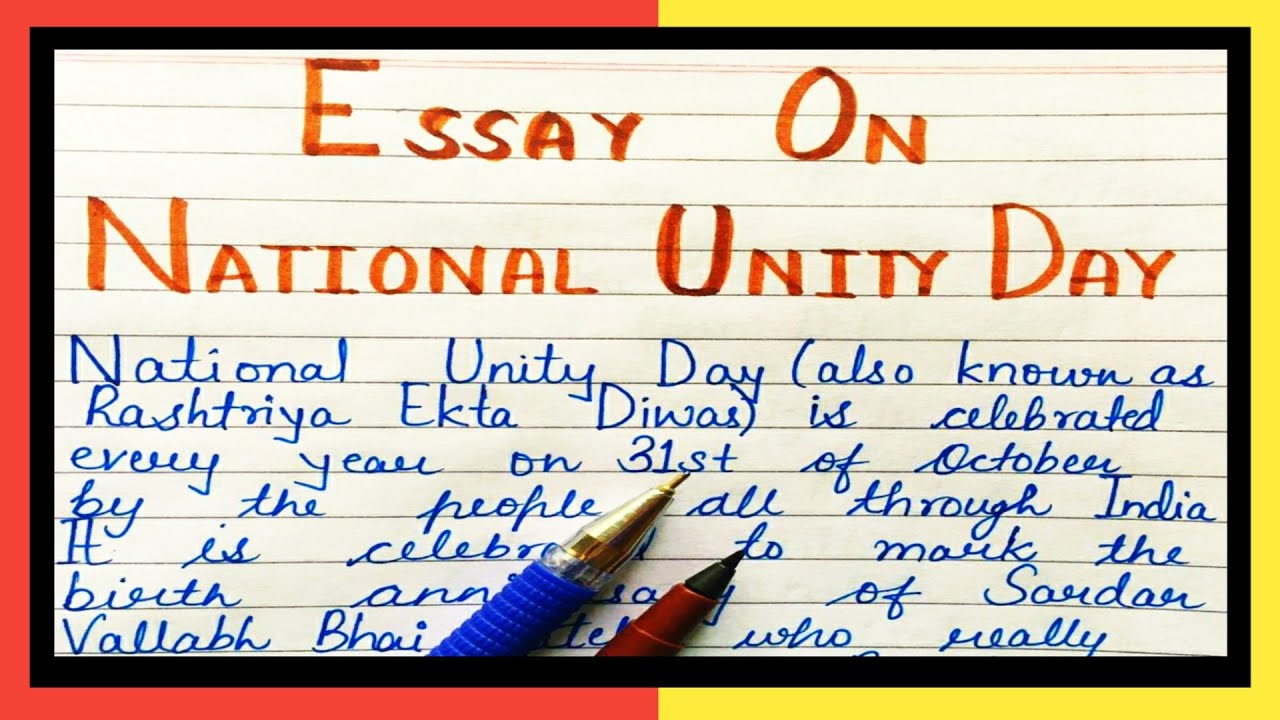 ESSAY ON
NATIONAL UNITY DAY
National Unity Day (also known as
Rashtriya Ekta Diwas) is celebrated
every year on 31st of October
by the people all through India
It is to mark the
birth of Sardar
Vallabh Bhai who really